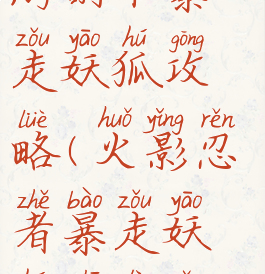 zǒu yāo hú gōng
走妖狐攻
lüè huǒ yǐng rěn
略(火影忍
zhě bào zǒu yāo
者暴走妖